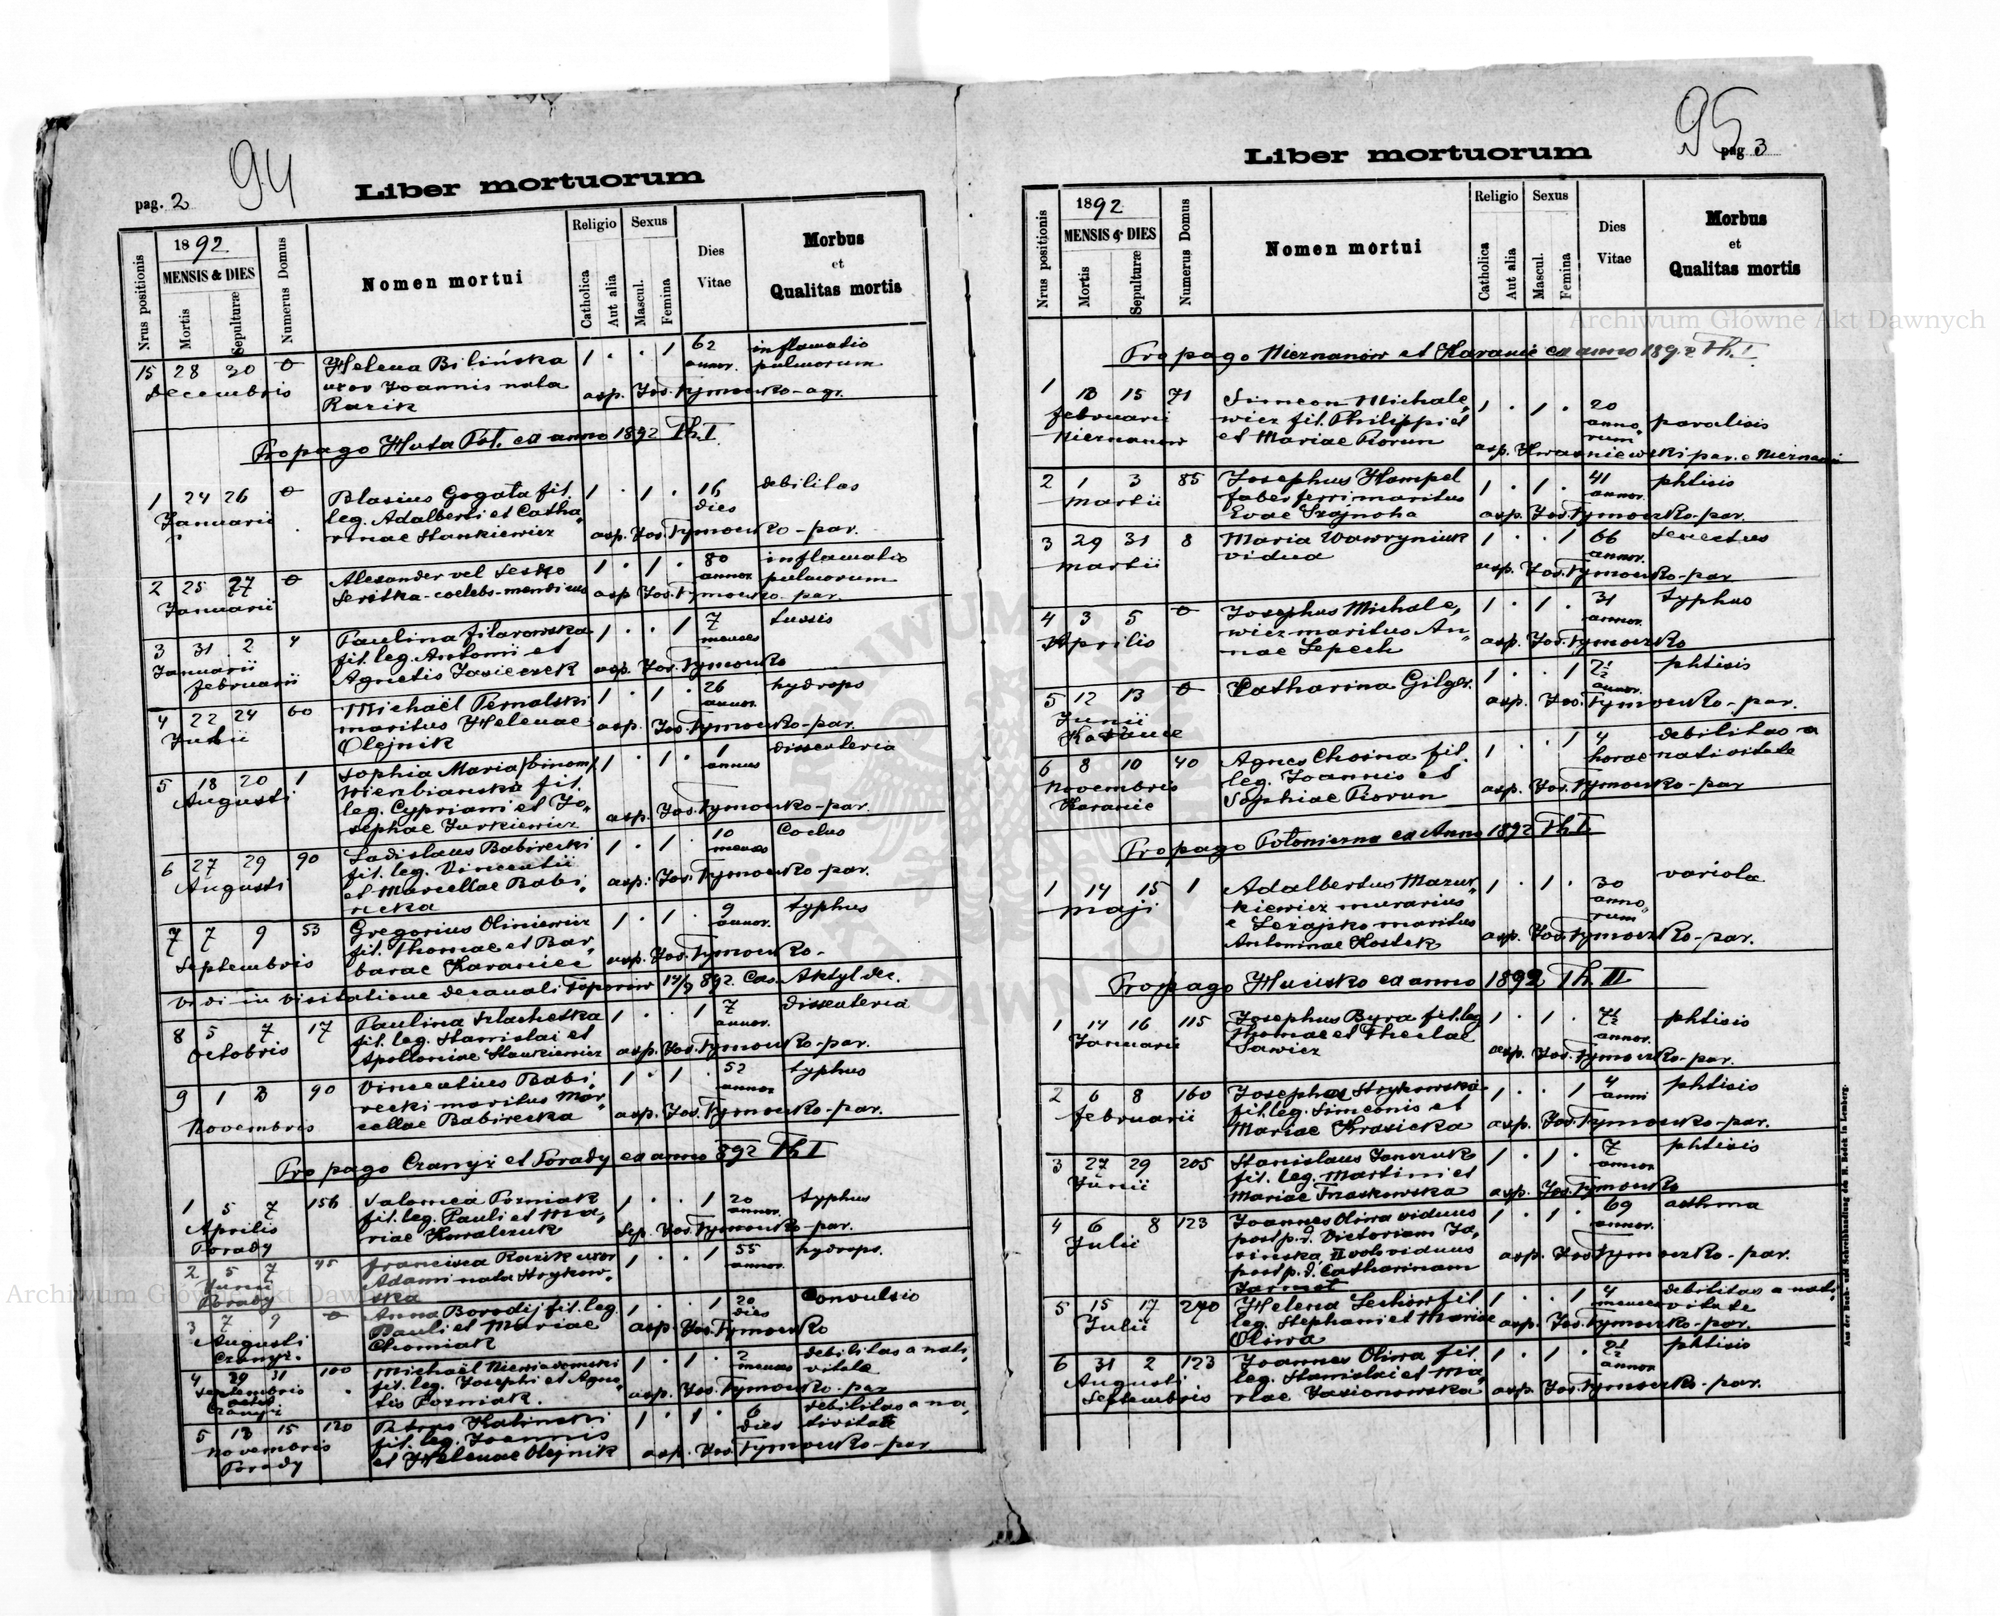 94
pag. 2
Liber mortuorum
Nrus positionis
1892
MENSIS & DIES
Mortis
Sepulturæ
Numerus Domus
Nomen mortui
Religio
Catholica
Aut alia
Sexus
Mascul.
Femina
Dies
Vitae
Morbus
et
Qualitas mortis
15 28 30 0 Helena Bilińska 1 . . 1 62 inflamatio
Decembris uxor Joannis nata annor. pulmorum
Razik asp. Jos. Tymowsko - agr.
Propago Huta Poł. ex anno 1892 Th. I.
1 24 26 0 Blasius Gogała fil. 1 . 1 . 16 debilitas
Januarii leg. Adalberti et Catha, dies
rinae Stankiewicz asp. Jos. Tymowsko - par.
2 25 27 0 Alexander vel Leszko 1 . 1 . 80 inflamatio
Januarii Seritka - coelebs - mendicus annor. pulmorum
asp. Jos. Tymowsko - par.
3 31 2 4 Paulina Filarowska 1 . . 1 7 tussis
Januarii fil. leg. Antonii et menses
februarii Agnetis Jasieczek asp. Jos. Tymowsko
4 22 24 60 Michaël Pernalski 1 . 1 . 26 hydrops
maritus Helenae annor.
Olejnik asp. Jos. Tymowsko - par.
5 18 20 1 Sophia Maria (binom) 1 . 1 . 1 dissenteria
Augusti Wierbianska fil. annus
leg. Cypriani et Jo,
sephae Jurkiewicz asp. Jos. Tymowsko - par.
6 27 29 90 Ladislaus Babirecki 1 . 1 . 10
Augusti fil. leg. Vincentii menses
et Marcellae Babi, asp. Jos. Tymowsko - par.
recka
7 7 9 53 Gregorius Oliniewicz 1 . 1 . 9 typhus
Septembris fil. Thomae et Bar, annor.
barae Karaniec asp. Jos. Tymowsko -
Vidi in visitatione decanali Toporów 14/9 892. Cas. Aktyl dec.
8 5 7 17 Paulina Szlachetka 1 . . 1 7 dissenteria
Octobris fil. leg. Stanislai et annor.
Apolloniae Stankiewicz asp. Jos. Tymowsko - par.
9 1 3 90 Vincentius Babi, 1 . 1 . 52 typhus
Novembris recki maritus Mar, annor.
cellae Babirecka asp. Jos. Tymowsko - par.
Propago Czanyż et Porady ex anno 892 Th I
1 5 7 156 Salomea Pozniak 1 . . 1 20 typhus
Aprilis fil. leg. Pauli et Ma, annor.
Porady riae Kowalczuk Sep. Jos. Tymowsko - par.
2 5 7 45 Francisca Razik uxor 1 . . 1 55 hydrops.
Junii Adami nata Strykow, annor.
Porady ska
3 7 9 0 Anna Borodij fil. leg. 1 . . 1 20 Convulsio
Augusti Pauli et Mariae dies
Czanyż. Chomiak asp. Jos. Tymowsko
4 29 31 100 Michaël Niewiadomski 1 . 1 . 2 debilitas a nati,
Septembris fil. leg. Josephi et Agne, menses vitate
Czanyż tis Pozniak. asp. Jos. Tymowsko - par
5 13 15 120 Petrus Kalinski 1 . 1 . 6 debilitas a na,
Novembris fil. leg. Joannis dies tivitate
Porady et Helenae Olejnik asp. Jos. Tymowsko - par
95
Liber mortuorum
pag 3
Nrus positionis
1892
MENSIS & DIES
Mortis
Sepulturæ
Numerus Domus
Nomen mortui
Religio
Catholica
Aut alia
Sexus
Mascul.
Femina
Dies
Vitae
Morbus
et
Qualitas mortis
Propago Nieznanów et Karanie ex anno 1892 Th. I.
1 13 15 71 Simeon Michale, 1 . 1 . 20 paralisis
februarii wicz fil. Philippi et anno,
Nieznanów et Mariae Piorun rum
asp. Kwasniewski par. e Nieznanów
2 1 3 85 Josephus Hampel 1 . 1 . 41 phtisis
Martii faber ferri maritus annor.
Evae Szajnoha asp. Jos. Tymowsko - par.
3 29 31 8 Maria Wawryniuk 1 . . 1 66 senectus
Martii vidua annor.
asp. Jos. Tymowsko - par
4 3 5 0 Josephus Michale, 1 . 1 . 31 typhus
Aprilis wicz maritus An, annor.
nae Lepech asp. Jos. Tymowsko
5 12 13 0 Catharina Gilger. 1 . . 1 2½ phtisis
Junii annor.
Karanie asp. Jos. Tymowsko - par.
6 8 10 40 Agnes Choina fil. 1 . . 1 4 debilitas a
Novembris leg. Joannis et horae nativitate
Karanie Sophiae Piorun asp. Jos. Tymowsko - par
Propago Połoniczna ex Anno 1892 Th I.
1 14 15 1 Adalbertus Mazur, 1 . 1 . 30 variola
Maji kiewicz murarius anno,
e Leżajsko maritus rum
Antoninae Kostek asp. Jos. Tymowsko - par.
Propago Hucisko ex anno 1892 Th. III
1 14 16 115 Josephus Byra fil. leg 1 . 1 . 7½ phtisis
Januarii Thomae et Theclae annor.
Sawicz asp. Jos. Tymowsko - par.
2 6 8 160 Josepha Strykowska 1 . . 1 4 phtisis
februarii fil. leg. Simeonis et anni
Mariae Krasicka asp. Jos. Tymowsko - par.
3 27 29 205 Stanislaus Janczuk 1 . 1 . 7 phtisis
Junii fil. leg. Martini et annor
Mariae Trzaskowska asp. Jos. Tymowsko
4 6 8 123 Joannes Oliwa viduus 1 . 1 . 69 asthma
Julii post p. d. Victoriam Ja, annor.
sinska II voto viduus
post p. d. Catharinam asp. Jos. Tymowsko - par.
Jarmot
5 15 17 240 Helena Lechów fil 1 . . 1 4 debilitas a nati,
Julii leg. Stephani et Mariae menses vitate
Oliwa asp. Jos. Tymowsko - par.
6 31 2 123 Joannes Oliwa fil. 1 . 1 . 2½ phtisis
Augusti leg. Stanislai et Ma, annor
Septembris riae Jasionowska asp. Jos. Tymowsko - par.
Aus der Buch- und Schreibhandlung des H. Bodek in Lemberg.
Archiwum Główne Akt Dawnych
Archiwum Główne Akt Dawnych
ARCHIWUM GŁÓWNE AKT DAWNYCH